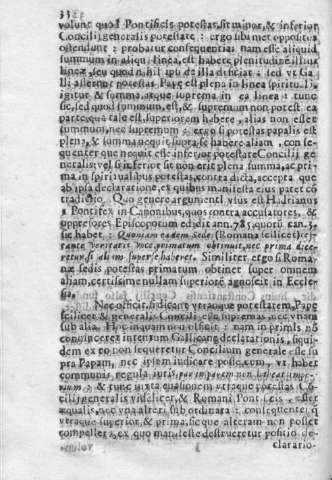 volunt quod Pontificis potestas sit minor, & inferior
Concilij generalis potestate: ergo sibimet oppositum
ostendunt: probatur consequentia: nam esse aliquid
summum in aliqua linea, est habere plenitudinē illius
lineæ, seu quod nihil ipsi de illa deficiat: sed vt Gal-
li asserunt potestas Papę est plena in linea spirituali,
igitur & summa atque suprema in ea linea: tunc
sic, sed quod summum est, & supremum non potest ea
parte, qua tale est, superiorem habere, alias non esset
summum, nec supremum: ergo si potestas papalis est
plena, & summa nequit supra se habere aliam, con se-
quenter que nequit esse inferior potestate Concilij ge-
neralis: vel si inferior sit non erit plena summa, ac pri-
ma in spiritualibus potestas, contra dicta, accepta que
ab ipsa declaratione, ex quibus manifesta eius patet cō
tradictio. Quo genere argumenti vsus est Hadrianus
1. Pontifex in Canonibus, quos contra accusatores, &
oppresores Episcoporum edidit ann. 785. quorū can.
sic habet: Quoniam eadem Sede (Romana scilicet)
rante veritatis voce, primatum obtinuit, nec prima dice-
retur, si aliam super se haberet. Similiter ergo si Roma-
næ sedis potestas primatum obtinet super omnem
aliam, certissime nullam superiorē agnoscit in Eccle-
sia.
Nec obstat, iudicare vtramque potestatem, Papę
scilicet & generalis Concilij esse supremas, nec vnam
sub alia. Hoc inquam non obstat: nam in primis nō
convincerez intentum Gallicanæ declarationis, siqui-
dem ex eo non sequeretur Concilium generale esse su
pra Papam, nec ipsum iudicare posse, cum, vt habet
communis regula iuris, par in parem non habeat impe-
rium: & tunc iuxta euasionem vtraque potestas Cō
cilij generalis videlicet, & Romani Pontificis, esset
æqualis, nec vna alteri sub ordinata: consequenter q
vtraque superior, & prima, sicque alteram non posset
compellere, ex quo manifeste destrueretur positio de-
clarario-